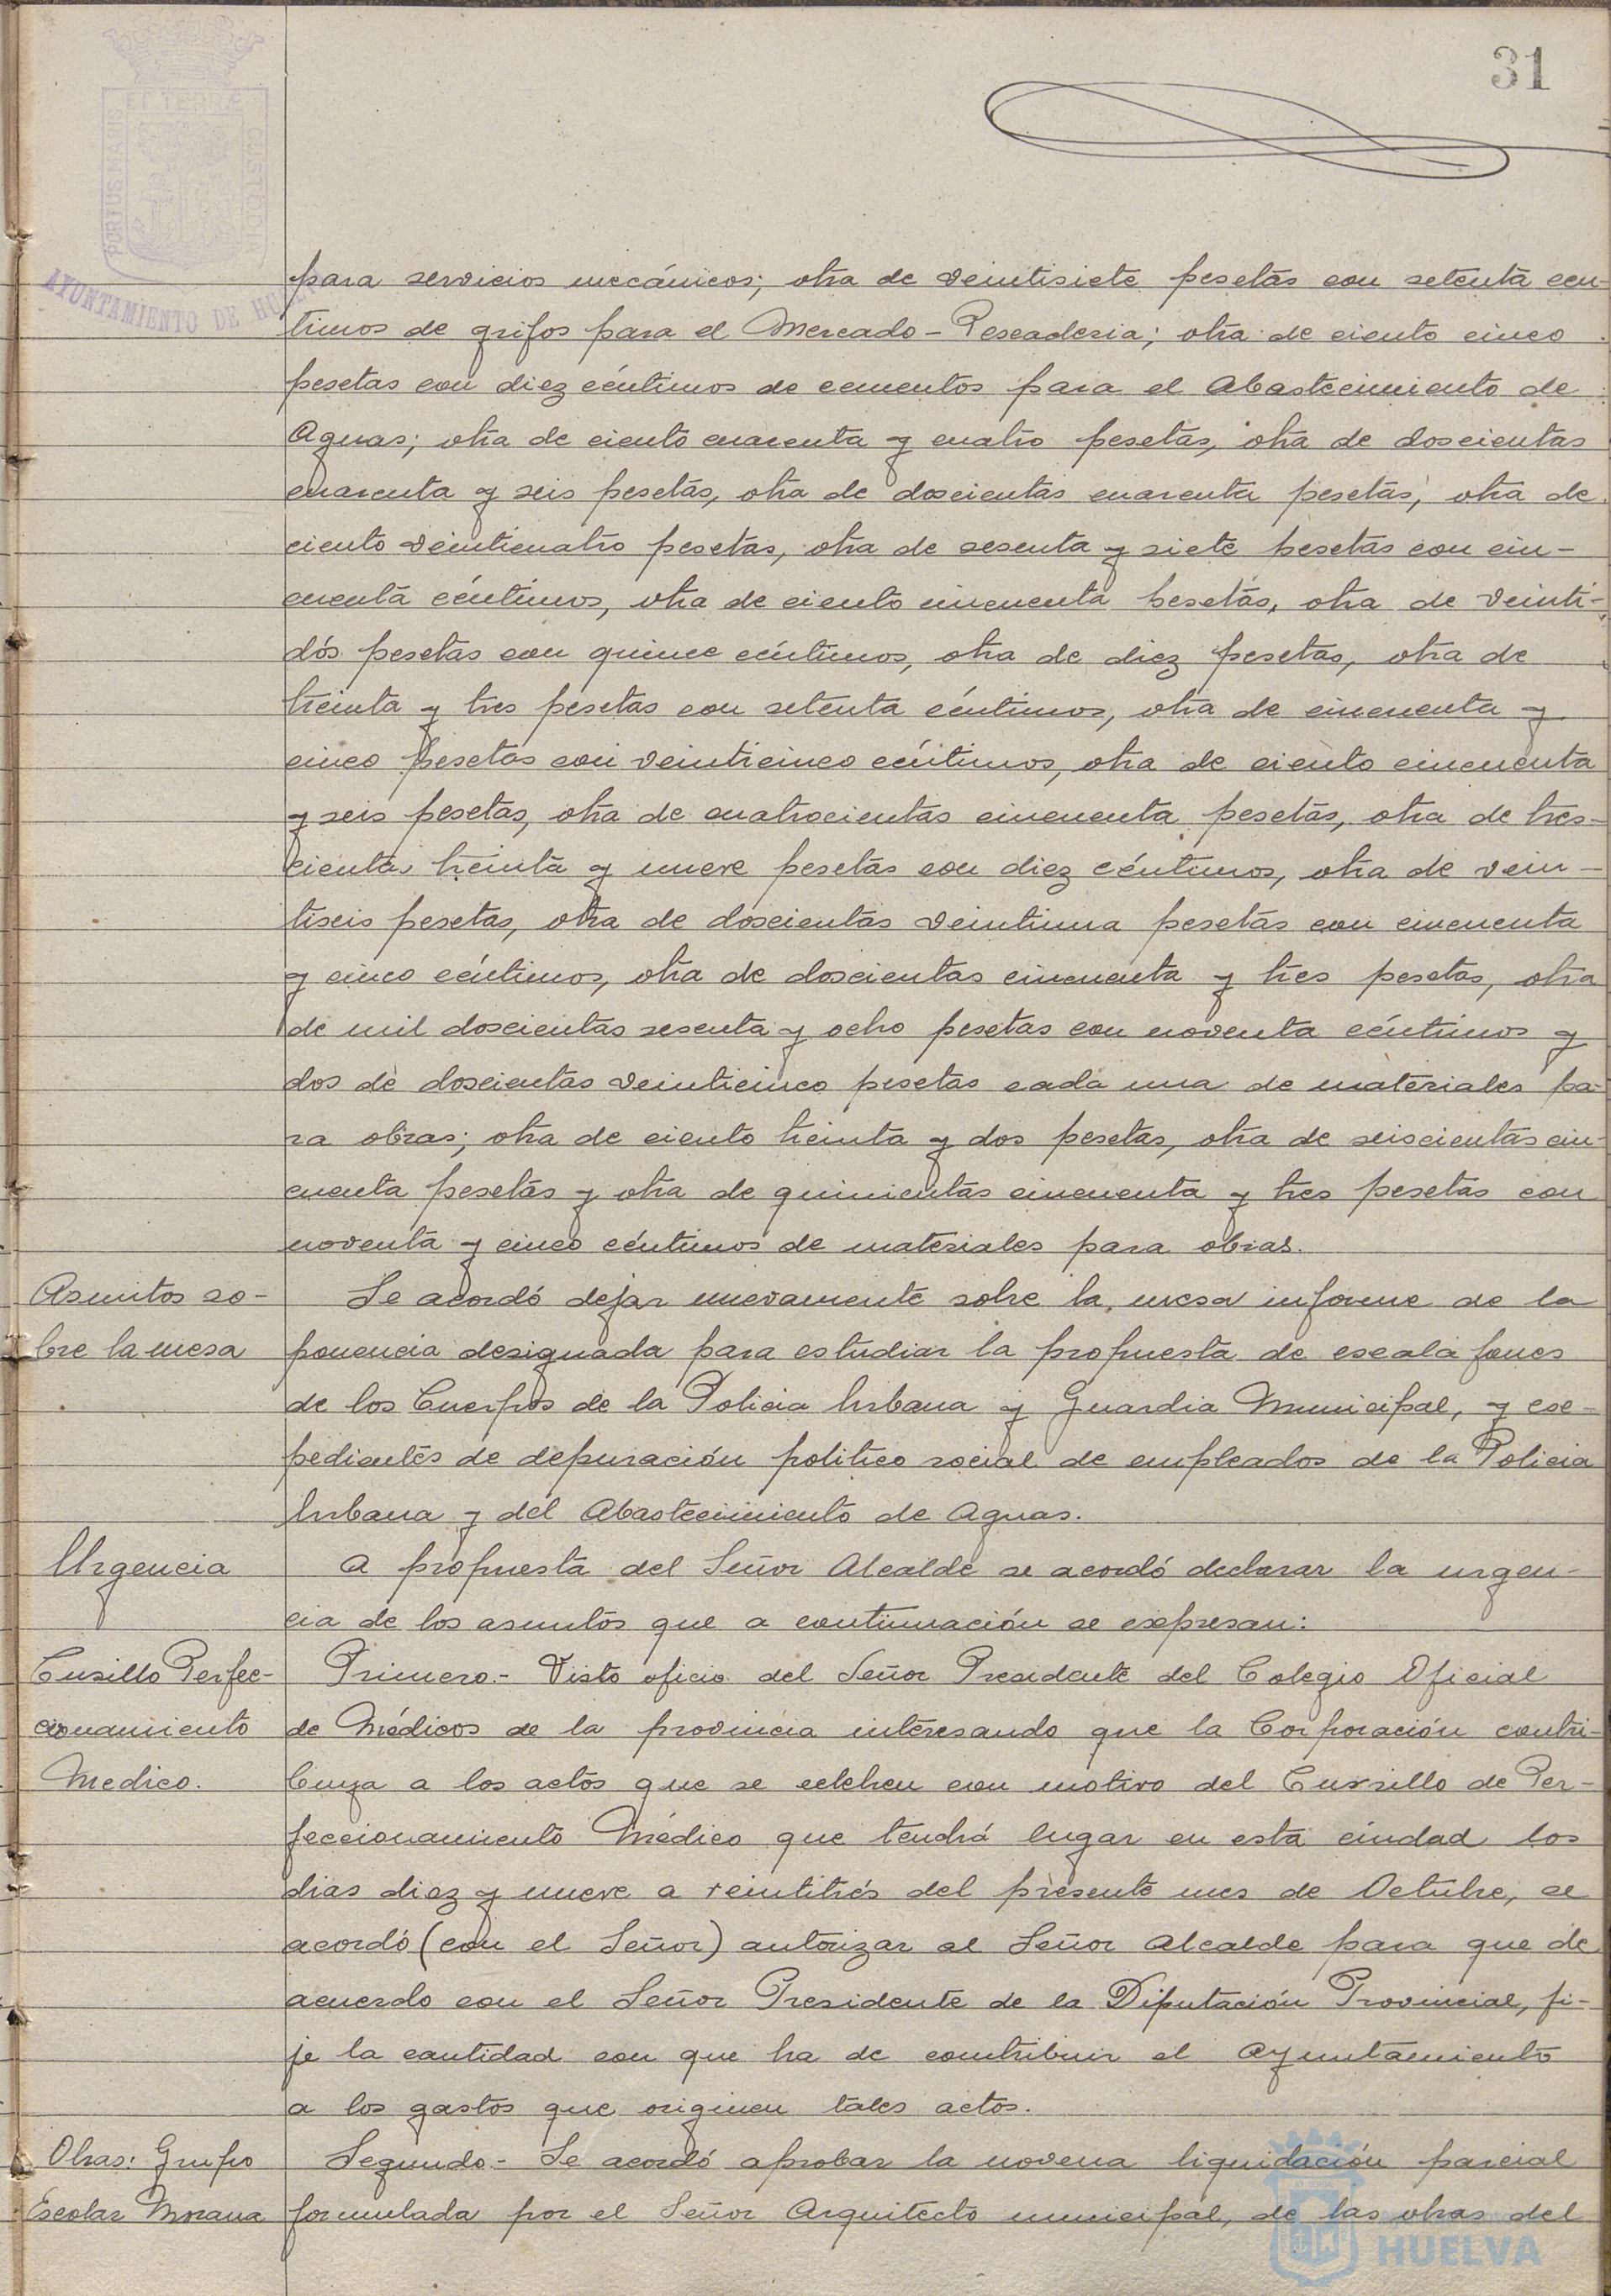 31
PORTUS MARIS ET TERRÆ CUSTODIA
AYUNTAMIENTO DE HUELVA
para servicios mecánicos; otra de veintisiete pesetas con setenta cen-
timos de grifos para el Mercado-Pescaderia; otra de ciento cinco
pesetas con diez céntimos de cementos para el Abastecimiento de
Aguas; otra de ciento cuarenta y cuatro pesetas, otra de doscientas
cuarenta y seis pesetas, otra de doscientas cuarenta pesetas, otra de
ciento veinticuatro pesetas, otra de sesenta y siete pesetas con cin-
cuenta céntimos, otra de ciento cincuenta pesetas, otra de veinti-
dós pesetas con quince céntimos, otra de diez pesetas, otra de
treinta y tres pesetas con setenta céntimos, otra de cincuenta y
cinco pesetas con veinticinco céntimos, otra de ciento cincuenta
y seis pesetas, otra de cuatrocientas cincuenta pesetas, otra de tres-
cientas treinta y nueve pesetas con diez céntimos, otra de vein-
tiseis pesetas, otra de doscientas veintiuna pesetas con cincuenta
y cinco céntimos, otra de doscientas cincuenta y tres pesetas, otra
de mil doscientas sesenta y ocho pesetas con noventa céntimos y
dos de doscientas veinticinco pesetas cada una de materiales pa-
ra obras; otra de ciento treinta y dos pesetas, otra de seiscientas cin-
cuenta pesetas y otra de quinientas cincuenta y tres pesetas con
noventa y cinco céntimos de materiales para obras.
Asuntos so-
bre la mesa
Se acordó dejar nuevamente sobre la mesa informe de la
ponencia designada para estudiar la propuesta de escalafones
de los Cuerpos de la Policia Urbana y Guardia Municipal, y exe-
pedientes de depuración politico social de empleados de la Policia
Urbana y del Abastecimiento de Aguas.
Urgencia
A propuesta del Señor Alcalde se acordó declarar la urgen-
cia de los asuntos que a continuación se expresan:
Cusillo Perfec-
cionamiento
Medico.
Primero.- Visto oficio del Señor Presidente del Colegio Oficial
de Médicos de la provincia interesando que la Corporación contri-
buya a los actos que se celebren con motivo del Cursillo de Per-
feccionamiento Médico que tendrá lugar en esta ciudad los
dias diez y nueve a veintitrés del presente mes de Octubre, se
acordó (con el Señor) autorizar al Señor Alcalde para que de
acuerdo con el Señor Presidente de la Diputación Provincial, fi-
je la cantidad con que ha de contribuir el Ayuntamiento
a los gastos que originen tales actos.
Obras: Grupo
Escolar Morana
Segundo.- Se acordó aprobar la novena liquidación parcial
formulada por el Señor Arquitecto municipal, de las obras del
HUELVA